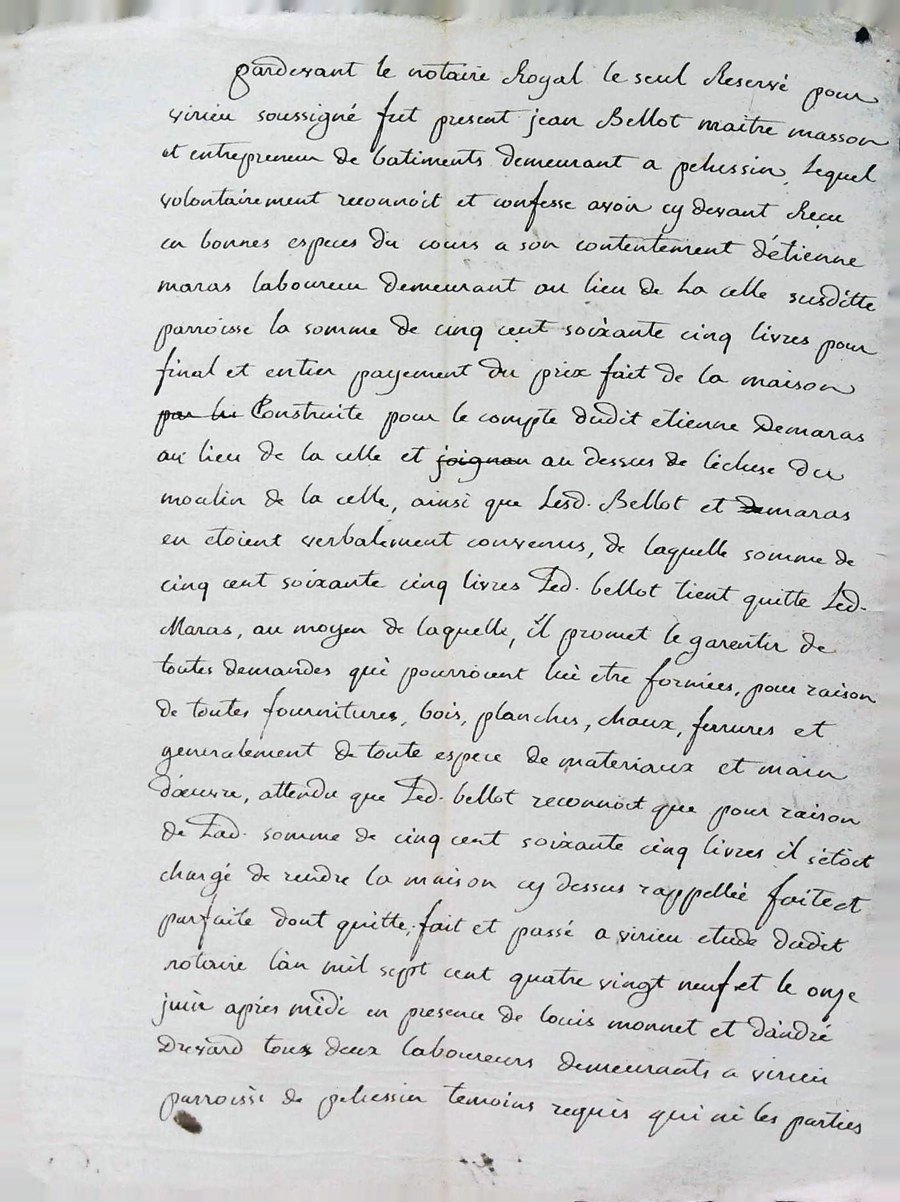 pardevant le notaire Royal le seul Reservé pour
virieu soussigné fut present jean Bellot maitre masson
et entrepreneur de batiments demeurant a pelussin, Lequel
volontairement reconnoit et confesse avoir cy devant Reçu
en bonnes especes du cours a son contentement d'étienne
maras laboureur demeurant au lieu de La celle susditte
parroisse la somme de cinq cent soixante cinq livres pour
final et entier payement du prix fait de la maison
par lui Construite pour le compte dudit etienne Demaras
au lieu de la celle et joignan au dessus de lécluse du
moulin de la celle, ainsi que Lesd. Bellot et Demaras
en etoient verbalement convenus, de laquelle somme de
cinq cent soixante cinq livres Led. bellot tient quitte Led.
Maras, au moyen de laquelle, il promet le garentir de
toutes demandes qui pourroient lui etre formées, pour raison
de toutes fournitures, bois, planches, chaux, ferrures et
generalement de toute espece de materiaux et main
d'œuvre, attendu que Led. bellot reconnoit que pour raison
de Lad. somme de cinq cent soixante cinq livres il s'étoit
chargé de rendre la maison cy dessus rappellée faite et
parfaite dont quitte. fait et passé a virieu etude dudit
notaire l'an mil sept cent quatre vingt neuf et le onze
juin après midi en presence de louis monnet et d'andré
Drevard tous deux laboureurs demeurants a virieu
parroisse de pelussin temoins requis qui ni les parties